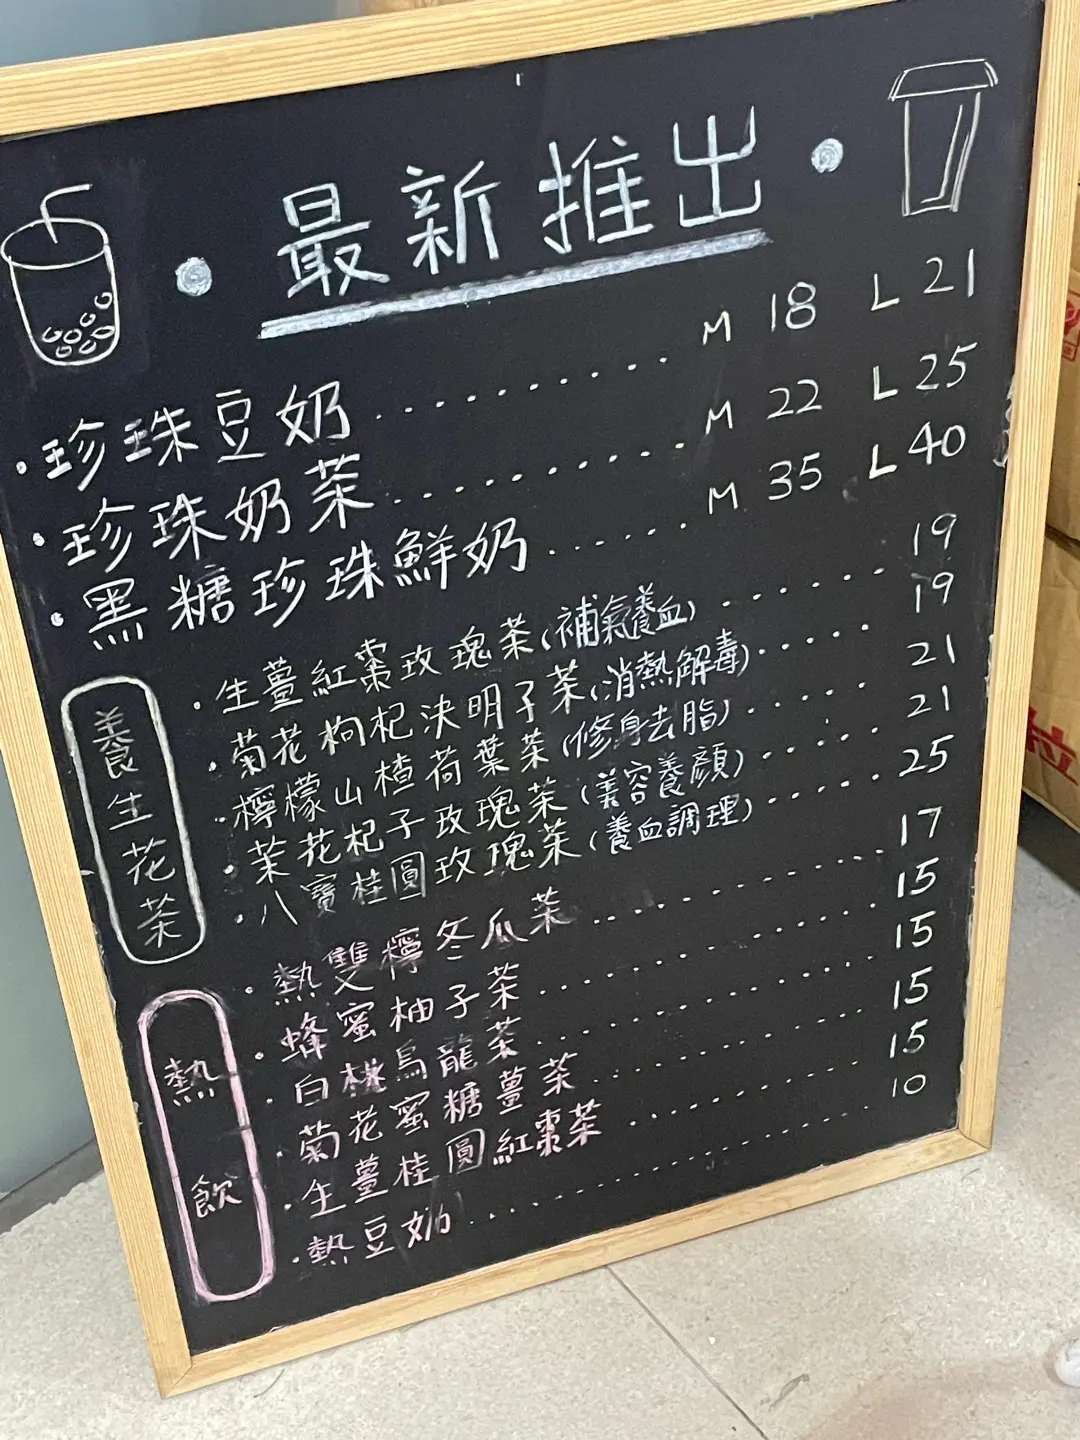 • 最新推出 •
• 珍珠豆奶........ M 18 L 21
• 珍珠奶茶........ M 22 L 25
• 黑糖珍珠鮮奶...... M 35 L 40
養生花茶
• 生薑紅棗玫瑰茶(補氣養血)..... 19
• 菊花枸杞決明子茶(消熱解毒)..... 19
• 檸檬山楂荷葉茶(修身去脂)..... 21
• 茉花杞子玫瑰茶(美容養顏)..... 21
• 八寶桂圓玫瑰茶(養血調理)..... 25
熱飲
• 熱雙檸冬瓜茶........ 17
• 蜂蜜柚子茶........ 15
• 白桃烏龍茶........ 15
• 菊花蜜糖薑茶........ 15
• 生薑桂圓紅棗茶........ 15
• 熱豆奶........ 10